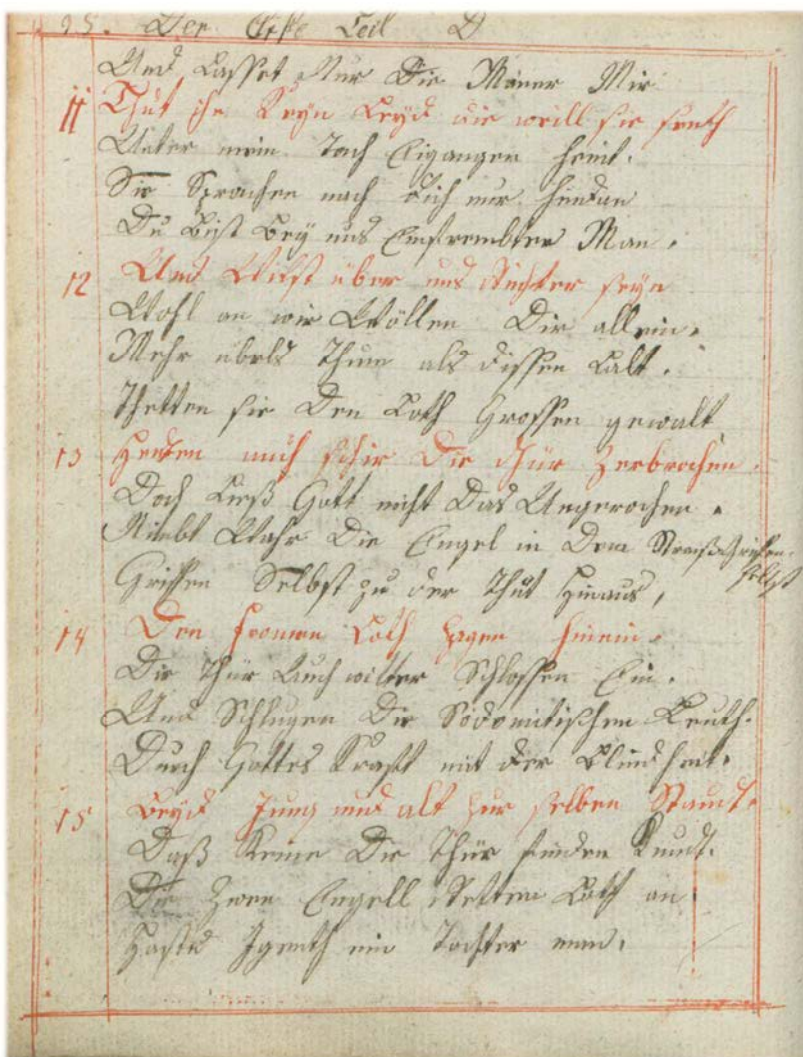 25. Der Erste Teil D
Und Lasset Nur Die Mäner Mir
11 Thut ihn Keyn Leyd die weill sie seith
Unter mein Tach Eigangen heint.
Sie Sprachen nach dich nur hindan
Du Bist Bey uns Einfrembter Man.
12 Und Wilst über uns Richter seyn
Wohl an wir Wöllen Dir allein.
Mehr übels Thun als dissen balt.
Thetten sie Den Loth Grossen gewalt
13 Hetten auch schir Die Thür Zerbrochen.
Doch Ließ Gott nicht Das Ungerochen.
Nimbt Wahr Die Engel in Dem Strauß Griffen
selbst
Griffen Selbst zu der Thüt Hinaus,
14 Den fromen Loth hinein.
Die Thür Auch witter Schlossen Ein.
Und Schlugen Die Sodomitischen Leuth.
Durch Gottes Krafft mit der Blindheit.
15 Beyd Jung und alt zur selben Stundt.
Daß Keine Die Thür finden Kundt.
Die Zwen Engell Retten Loth an.
Hastu ein Tochter man.